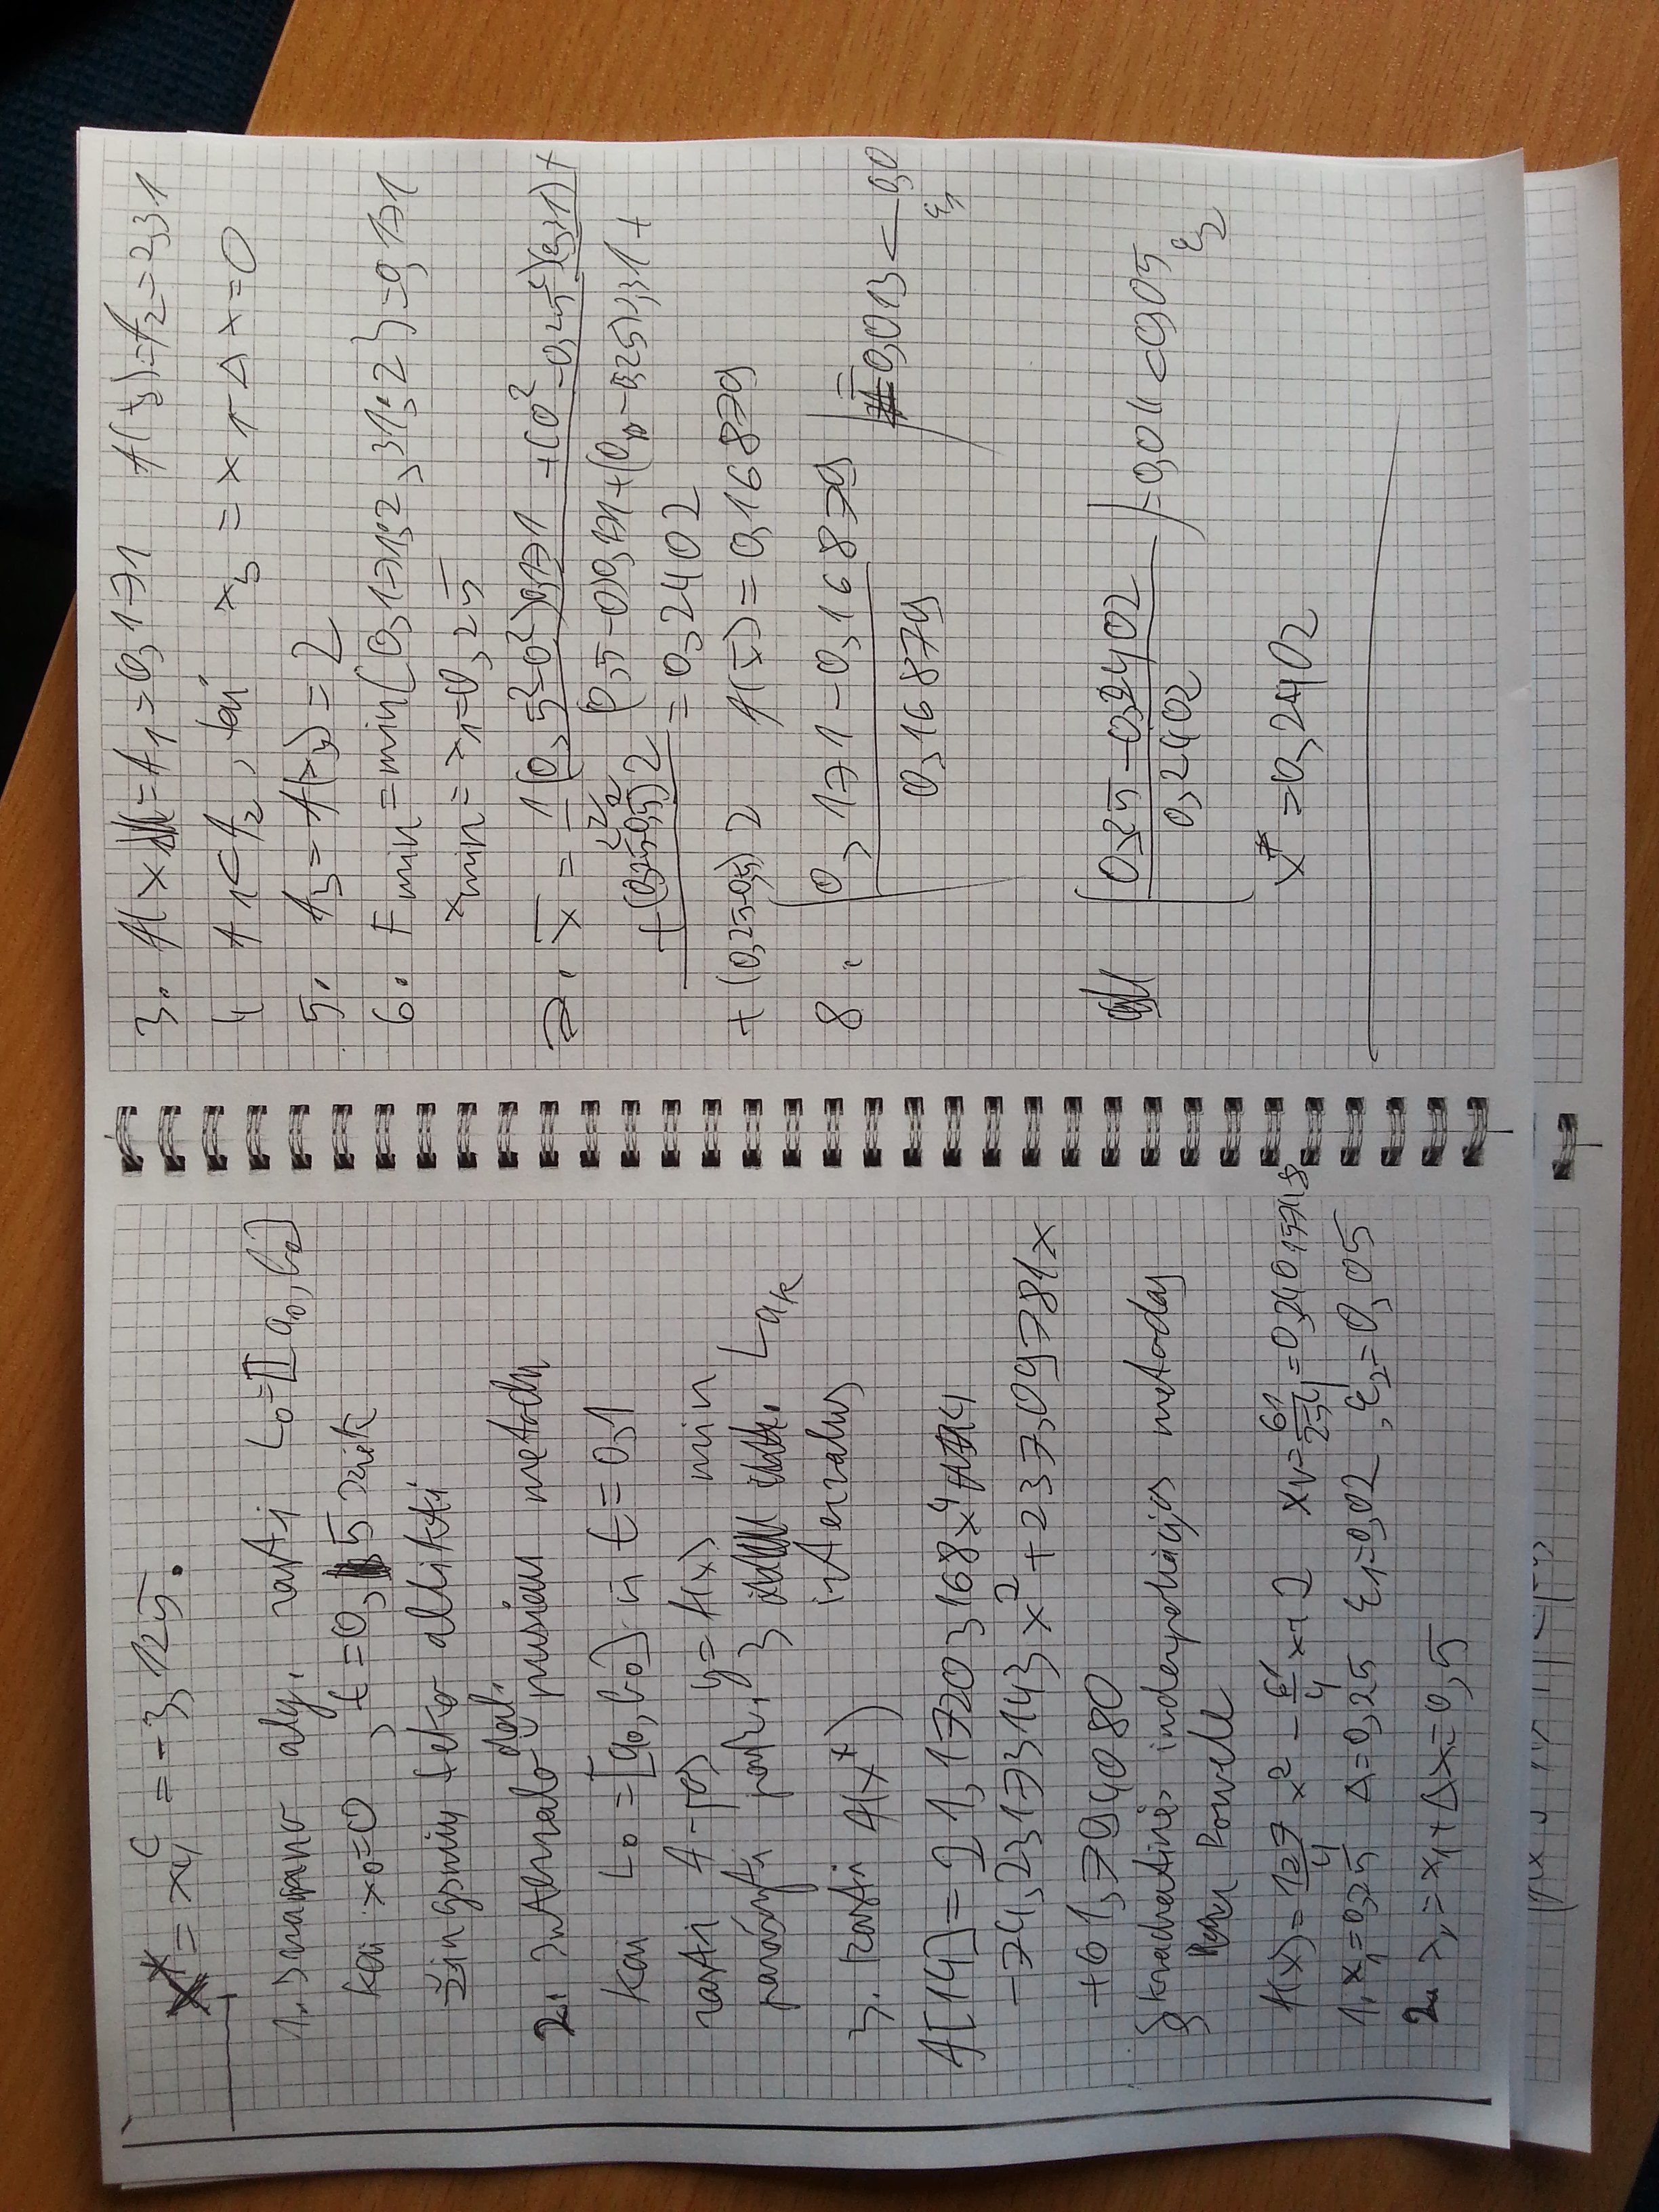 x* = x₄ᶜ = -3,125.
1. Svanano alg. rasti L₀=[a₀, b₀]
kai x₀=0, t=0,5 kiek
žingsnių teko atlikti
2. Intervalo dal. pusiau metodu
kai L₀ = [a₀, b₀] ir ε=0,1
rasti f-jos y=f(x) min
parašyti 3 L₀ₖ
intervalus
3. Rasti f(x*)
f[14] = 21,17203168x⁴
-74,23173143x² + 237,09781x
+61,794080
§ kvadratinės inderpoliacijos metodas
Powell
f(x) = 127/4 x² - 61/4 x + 2 xᵥ = 61/254 = 0,240157418
1. x₁=0,25 Δ=0,25 ε₁=0,02, ε₂=0,05
2. x₂ = x₁+Δx=0,5
3. f(x₁) = f₁ = 0,171 f(x₂)=f₂=2,31
4 f₁<f₂, tai x₃ = x₁-Δx=0
5. f₃ = f(x₃) = 2
6. Fmin = min{0,171; 2,31; 2} = 0,171
xmin = x₁=0,25
7. x̄ = 1/2 (0,5²-0²)0,171 + (0²-0,25²)(2,31) +
+(0,25²-0,5²)2 (0,5-0)0,171+(0-0,25)2,31+
= 0,2402
+ (0,25-0,5) 2 f(x̄) = 0,16879
8. |0,171-0,16879
0,16879| = 0,013 < 0,0
ε₁
|0,25-0,2402
0,2402| = 0,041 < 0,05
ε₂
x* = 0,2402